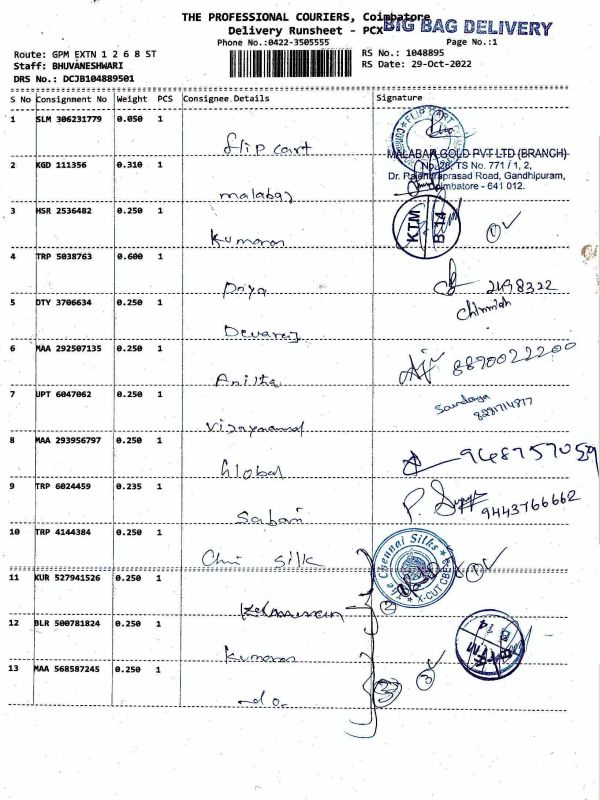 THE PROFESSIONAL COURIERS, Coimbatore
BIG BAG DELIVERY
Delivery Runsheet - PCX
Phone No.:0422-3505555
Page No.:1
Route: GPM EXTN 1 2 6 8 ST
RS No.: 1048895
Staff: BHUVANESHWARI
RS Date: 29-Oct-2022
DRS No.: DCJB104889501
S No Consignment No Weight PCS Consignee Details Signature
1 SLM 306231779 0.050 1
flip cart
FLIP CART
MALABAR GOLD PVT LTD (BRANCH)
No. 26, TS No. 771 / 1, 2,
Dr. Rajendraprasad Road, Gandhipuram,
Coimbatore - 641 012.
2 KGD 111356 0.310 1
malabar
3 HSR 2536482 0.250 1
Kumaran
KTM
B 14
1
4 TRP 5038763 0.600 1
Priya
2498322
5 DTY 3706634 0.250 1
Devaraj
Chinniah
6 MAA 292507135 0.250 1
Anitha
8890022200
7 UPT 6047062 0.250 1
Vijayanand
Soundarya
8281714817
8 MAA 293956797 0.250 1
Global
948757059
9 TRP 6024459 0.235 1
Sabari
P.
9443766662
10 TRP 4144384 0.250 1
Chni silk
The Chennai Silks
X-CUT CBE
1
11 KUR 527941526 0.250 1
2
12 BLR 500781824 0.250 1
Kumaran
B 14
13 MAA 568587245 0.250 1
do.
3
2